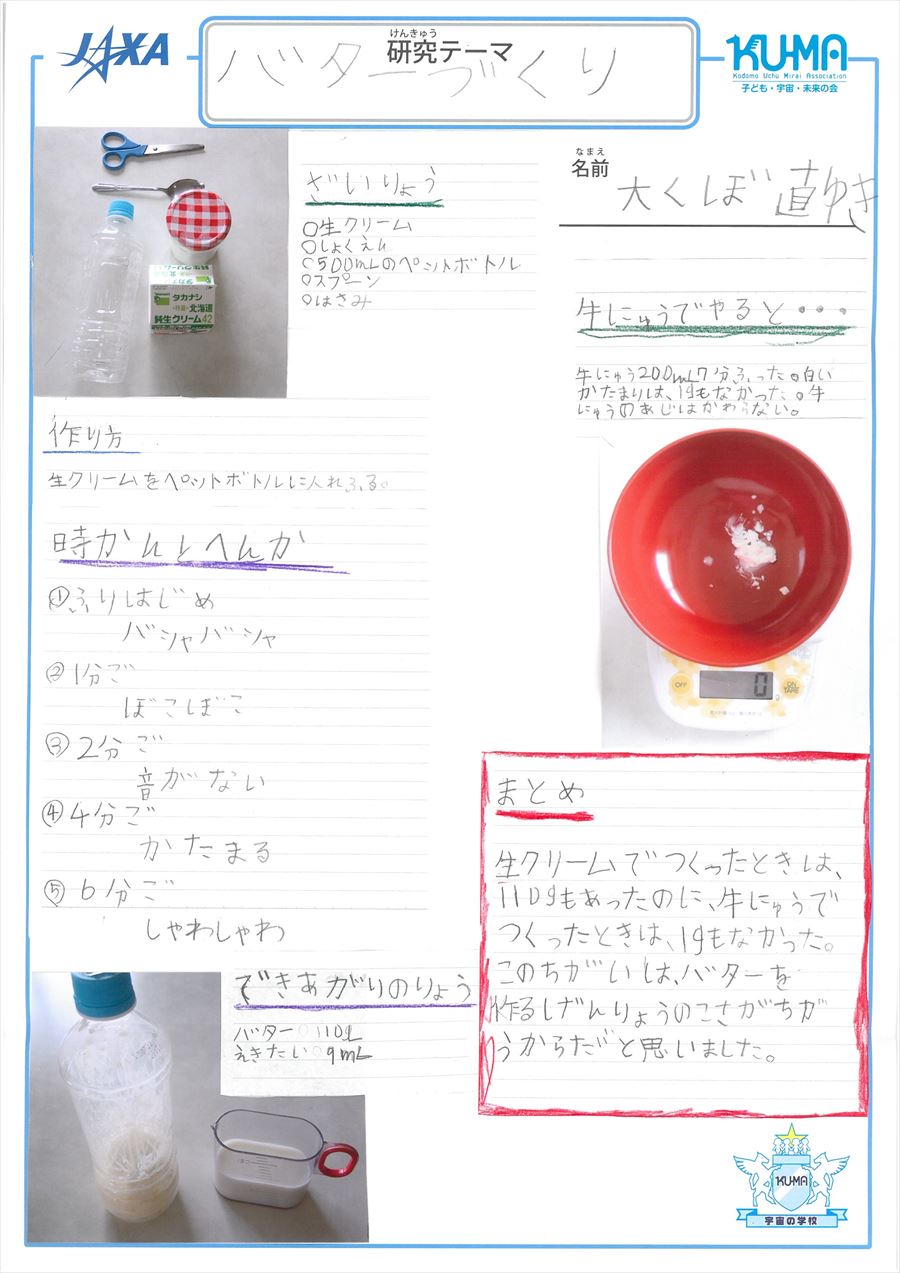 JAXA
けんきゅう
研究テーマ
バターづくり
KU-MA
Kodomo Uchu Mirai Association
子ども・宇宙・未来の会
なまえ
名前
大くぼ 直ゆき
ざいりょう
○生クリーム
○しょくえん
○500mLのペットボトル
○スプーン
○はさみ
タカナシ
北海道
純生クリーム42
牛にゅうでやると・・・
牛にゅう200mL7分ふった。白い
かたまりは、1gもなかった。牛
にゅうのあじはかわらない。
作り方
生クリームをペットボトルに入れふる。
時かんとへんか
①ふりはじめ
バシャバシャ
②1分ご
ぼこぼこ
③2分ご
音がない
④4分ご
かたまる
⑤6分ご
しゃわしゃわ
OFF
0
g
ON
TARE
できあがりのりょう
バター○110g
えきたい○9mL
まとめ
生クリームでつくったときは、
110gもあったのに、牛にゅうで
つくったときは、1gもなかった。
このちがいは、バターを
作るしげんりょうのこさがちが
うからだと思いました。
KU-MA
宇宙の学校